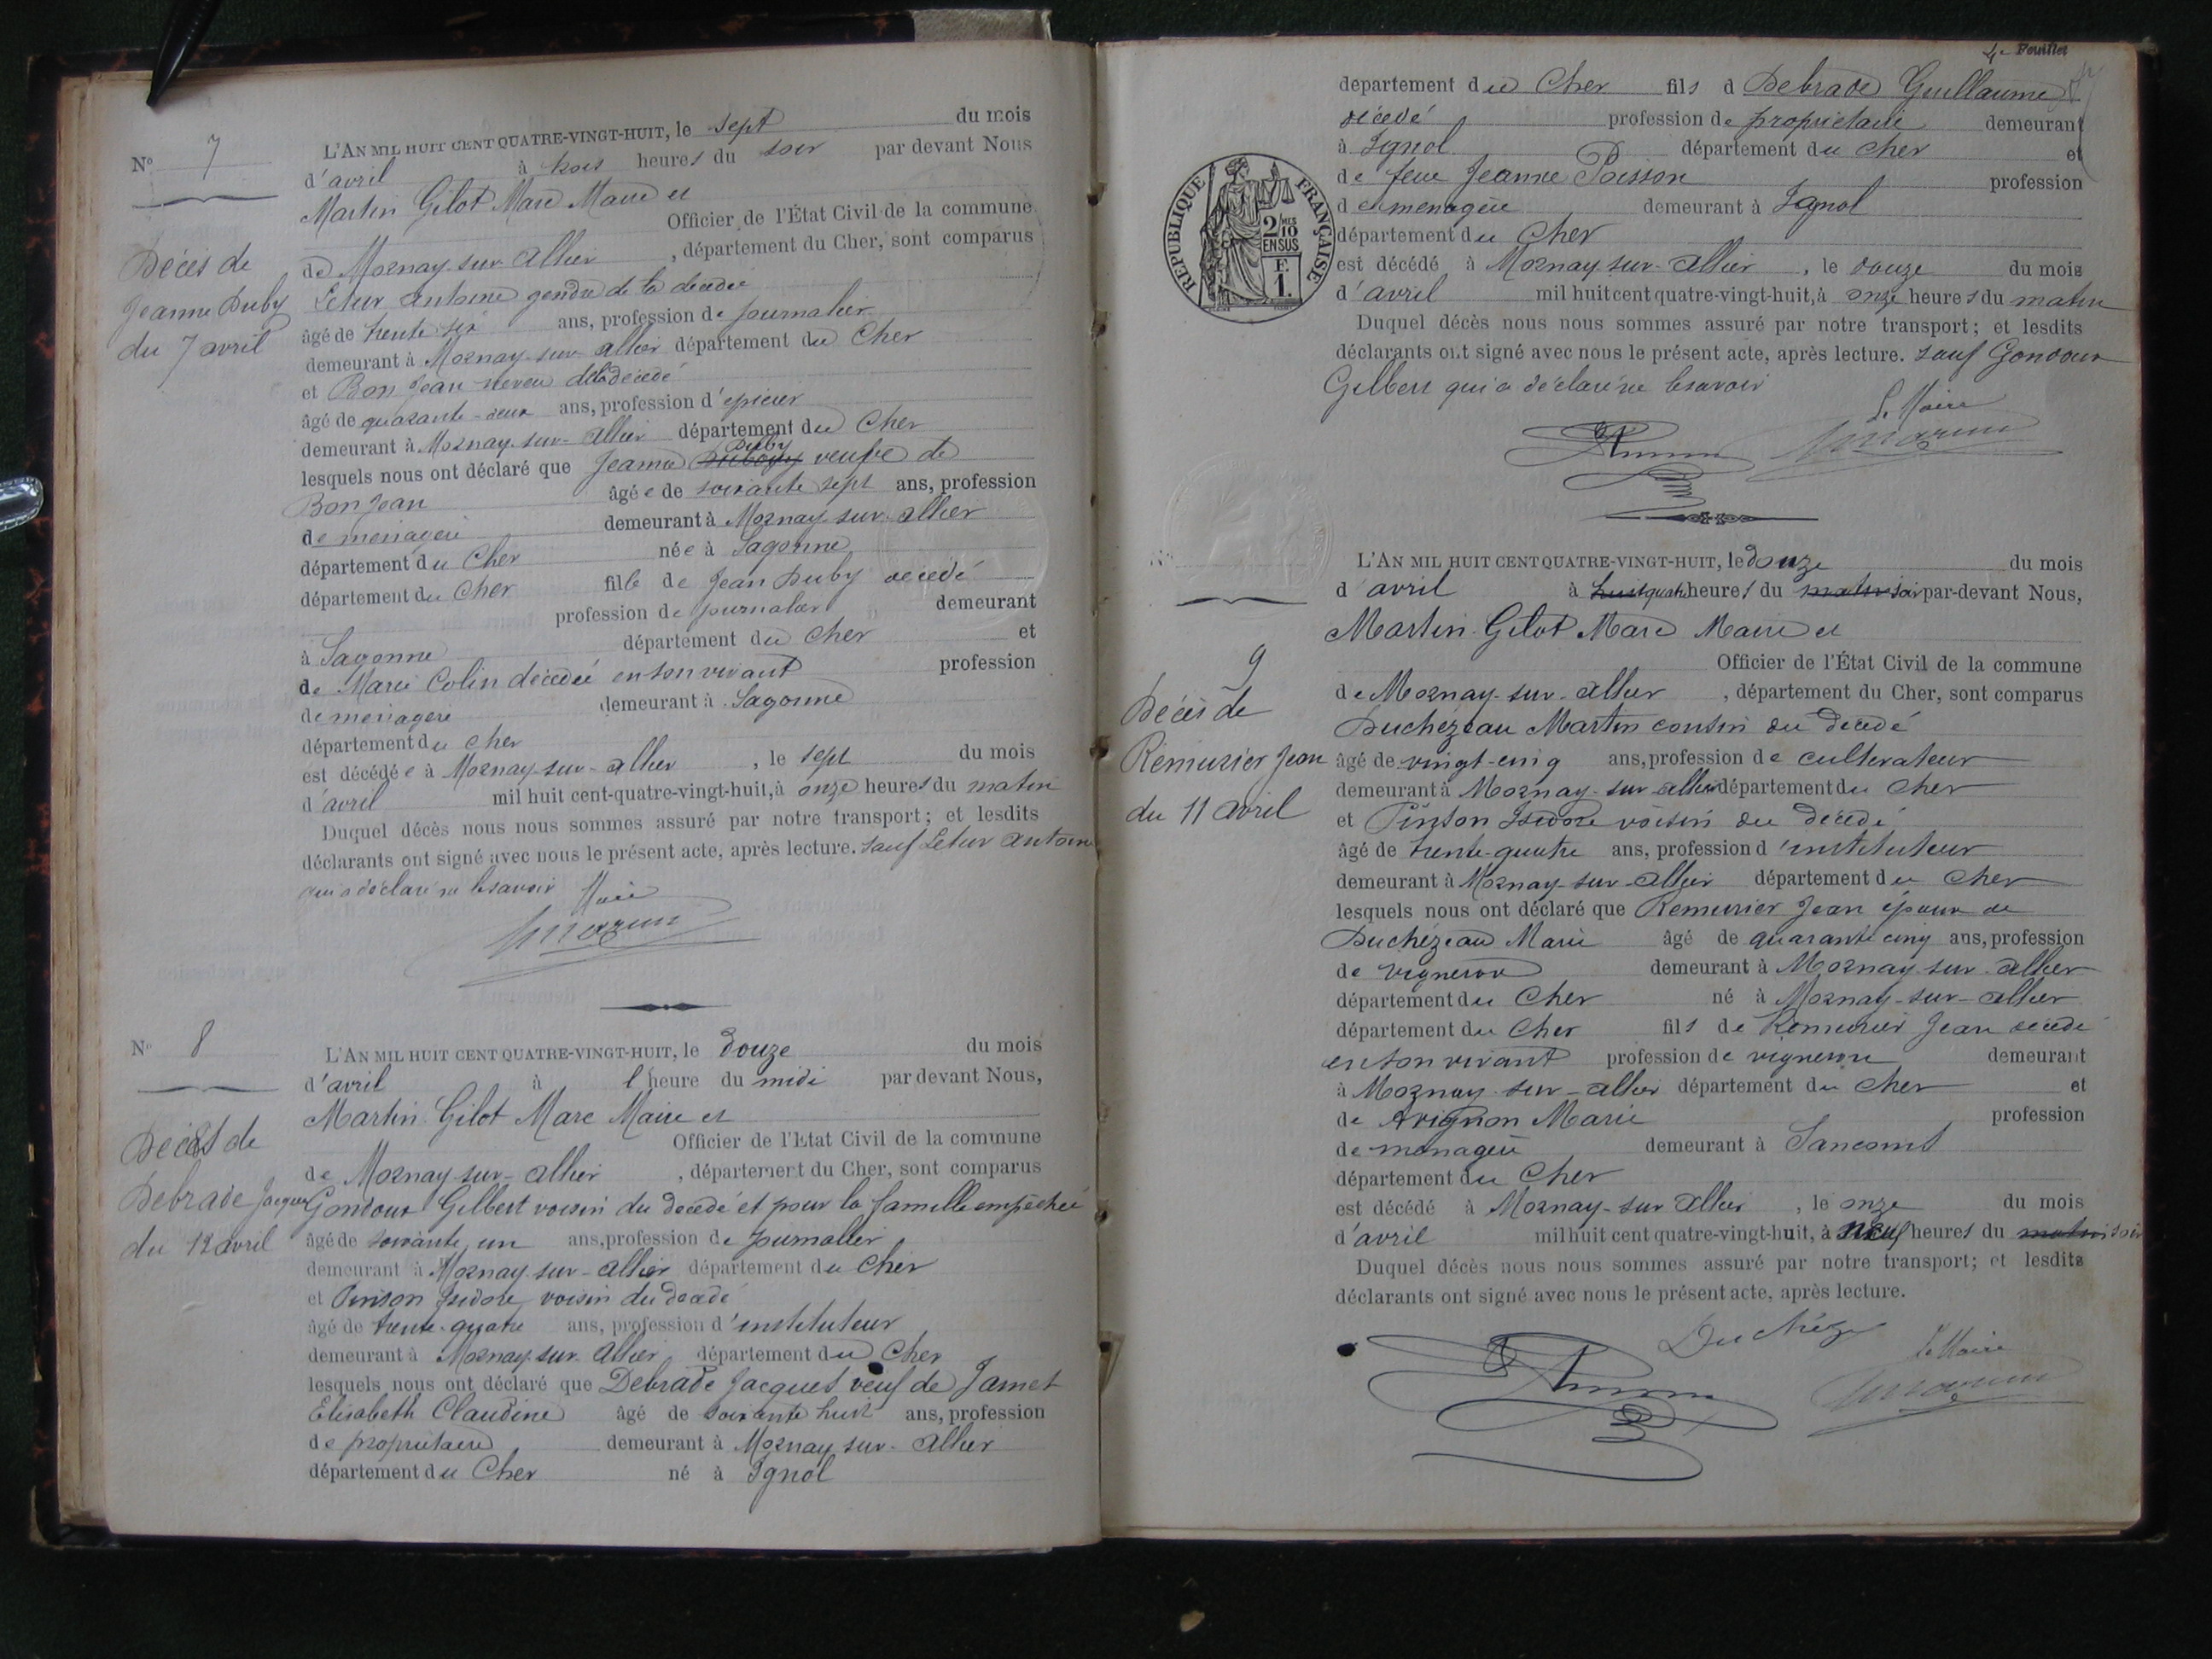 N° 7
Décès de
Jeanne Duby
du 7 avril
L'AN MIL HUIT CENT QUATRE-VINGT-HUIT, le sept du mois
d'avril à trois heures du soir par devant Nous
Martin Gilot Marc Maire et
Officier de l'État Civil de la commune
de Mornay-sur-Allier, département du Cher, sont comparus
Letur Antoine gendre de la décédée
âgé de trente six ans, profession de journalier
demeurant à Mornay-sur-Allier département du Cher
et Bon Jean neveu de la décédé
âgé de quarante-deux ans, profession d'épicier
demeurant à Mornay-sur-Allier département du Cher
Duby
lesquels nous ont déclaré que Jeanne veuve de
Bon Jean âgée de soixante sept ans, profession
de menagere demeurant à Mornay-sur-Allier
département du Cher née à Sagonne
département du Cher fille de Jean Duby décédé
profession de journalier demeurant
à Sagonne département du Cher et
de Marie Colin décédée en son vivant profession
de menagere demeurant à Sagonne
département du Cher
est décédée à Mornay-sur-Allier, le sept du mois
d'avril mil huit cent-quatre-vingt-huit, à onze heures du matin
Duquel décès nous nous sommes assuré par notre transport; et lesdits
déclarants ont signé avec nous le présent acte, après lecture. sauf Letur Antoine
qui a déclaré ne le savoir Maire
N° 8
Décès de
Debrade Jacques
du 12 avril
L'AN MIL HUIT CENT QUATRE-VINGT-HUIT, le douze du mois
d'avril à l heure du midi par devant Nous,
Martin Gilot Marc Maire et
Officier de l'Etat Civil de la commune
de Mornay-sur-Allier, département du Cher, sont comparus
Gondoux Gilbert voisin du décédé et pour la famille empêchée
âgé de soixante un ans, profession de journalier
demeurant à Mornay-sur-Allier département du Cher
et Pinson Isidore voisin du décédé
âgé de trente-quatre ans, profession d'instituteur
demeurant à Mornay-sur-Allier département du Cher
lesquels nous ont déclaré que Debrade Jacques veuf de Jamet
Elisabeth Claudine âgé de soixante huit ans, profession
de propriétaire demeurant à Mornay-sur-Allier
département du Cher né à Ignol
4e Feuillet
département du Cher fils d Debrade Guillaume
décédé profession de propriétaire demeurant
à Ignol département du Cher et
de feue Jeanne Poisson profession
d menagere demeurant à Ignol
département du Cher
est décédé à Mornay-sur-Allier, le douze du mois
d'avril mil huit cent quatre-vingt-huit, à onze heures du matin
Duquel décès nous nous sommes assuré par notre transport; et lesdits
déclarants ont signé avec nous le présent acte, après lecture. sauf Gondoux
Gilbert qui a déclaré ne le savoir
Le Maire
RÉPUBLIQUE FRANÇAISE
2/10
EN SUS
F.
1.
9
Décès de
Remurier Jean
du 11 avril
L'AN MIL HUIT CENT QUATRE-VINGT-HUIT, le douze du mois
d'avril à huit quatre heures du matin soir par-devant Nous,
Martin Gilot Marc Maire et
Officier de l'État Civil de la commune
de Mornay-sur-Allier, département du Cher, sont comparus
Duchézeau Martin cousin du décédé
âgé de vingt-cinq ans, profession de cultivateur
demeurant à Mornay-sur-Allier département du Cher
et Pinson Isidore voisin du décédé
âgé de trente-quatre ans, profession d'instituteur
demeurant à Mornay-sur-Allier département du Cher
lesquels nous ont déclaré que Remurier Jean époux de
Duchézeau Marie âgé de quarante cinq ans, profession
de vigneron demeurant à Mornay-sur-Allier
département du Cher né à Mornay-sur-Allier
département du Cher fils de Remurier Jean décédé
en son vivant profession de vigneron demeurant
à Mornay-sur-Allier département du Cher et
de Avignon Marie profession
de menagere demeurant à Sancoins
département du Cher
est décédé à Mornay-sur-Allier, le onze du mois
d'avril mil huit cent quatre-vingt-huit, à neuf heures du matin soir
Duquel décès nous nous sommes assuré par notre transport; et lesdits
déclarants ont signé avec nous le présent acte, après lecture.
Le Maire